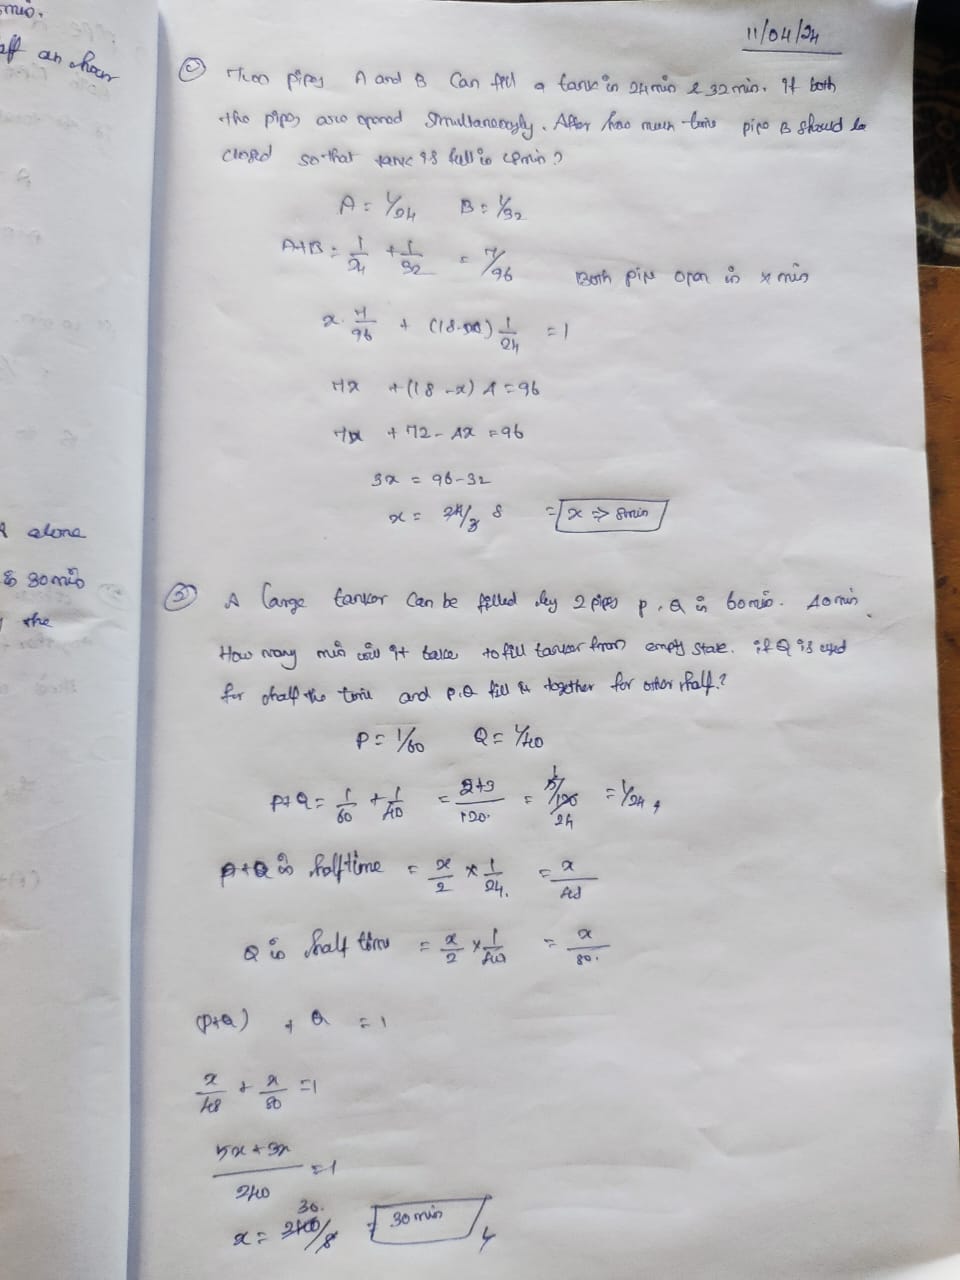 mio.
aff an hour
R alone
& 30 min
the
11/04/24
Two pipes A and B Can fill a tank in 24min & 32min. If both
the pipes are opened Smultaneously. After how much time pipe B should be
closed so that tank is full in 18min?
A = 1/24 B = 1/32
A+B = 1/24 + 1/32 = 7/96
Both pipe open in x min
x. 7/96 + (18-x) 1/24 = 1
7x + (18-x) 4 = 96
7x + 72 - 4x = 96
3x = 96-32
x = 24/3 8 = x => 8min
② A large tanker Can be filled by 2 pipes P, Q in 60min. 40min.
How many min will it take to fill tanker from empty state. if Q is used
for half the time and P.Q fill it together for other half.?
P = 1/60 Q = 1/40
P+Q = 1/60 + 1/40 = 2+3/120. = 5/120 1/24 = 1/24,
P+Q in half time = x/2 × 1/24. = x/48
Q in half time = x/2 × 1/40 = x/80.
(P+Q) + Q = 1
x/48 + x/80 = 1
5x + 3x/240 = 1
x = 240/8 30. = 30 min